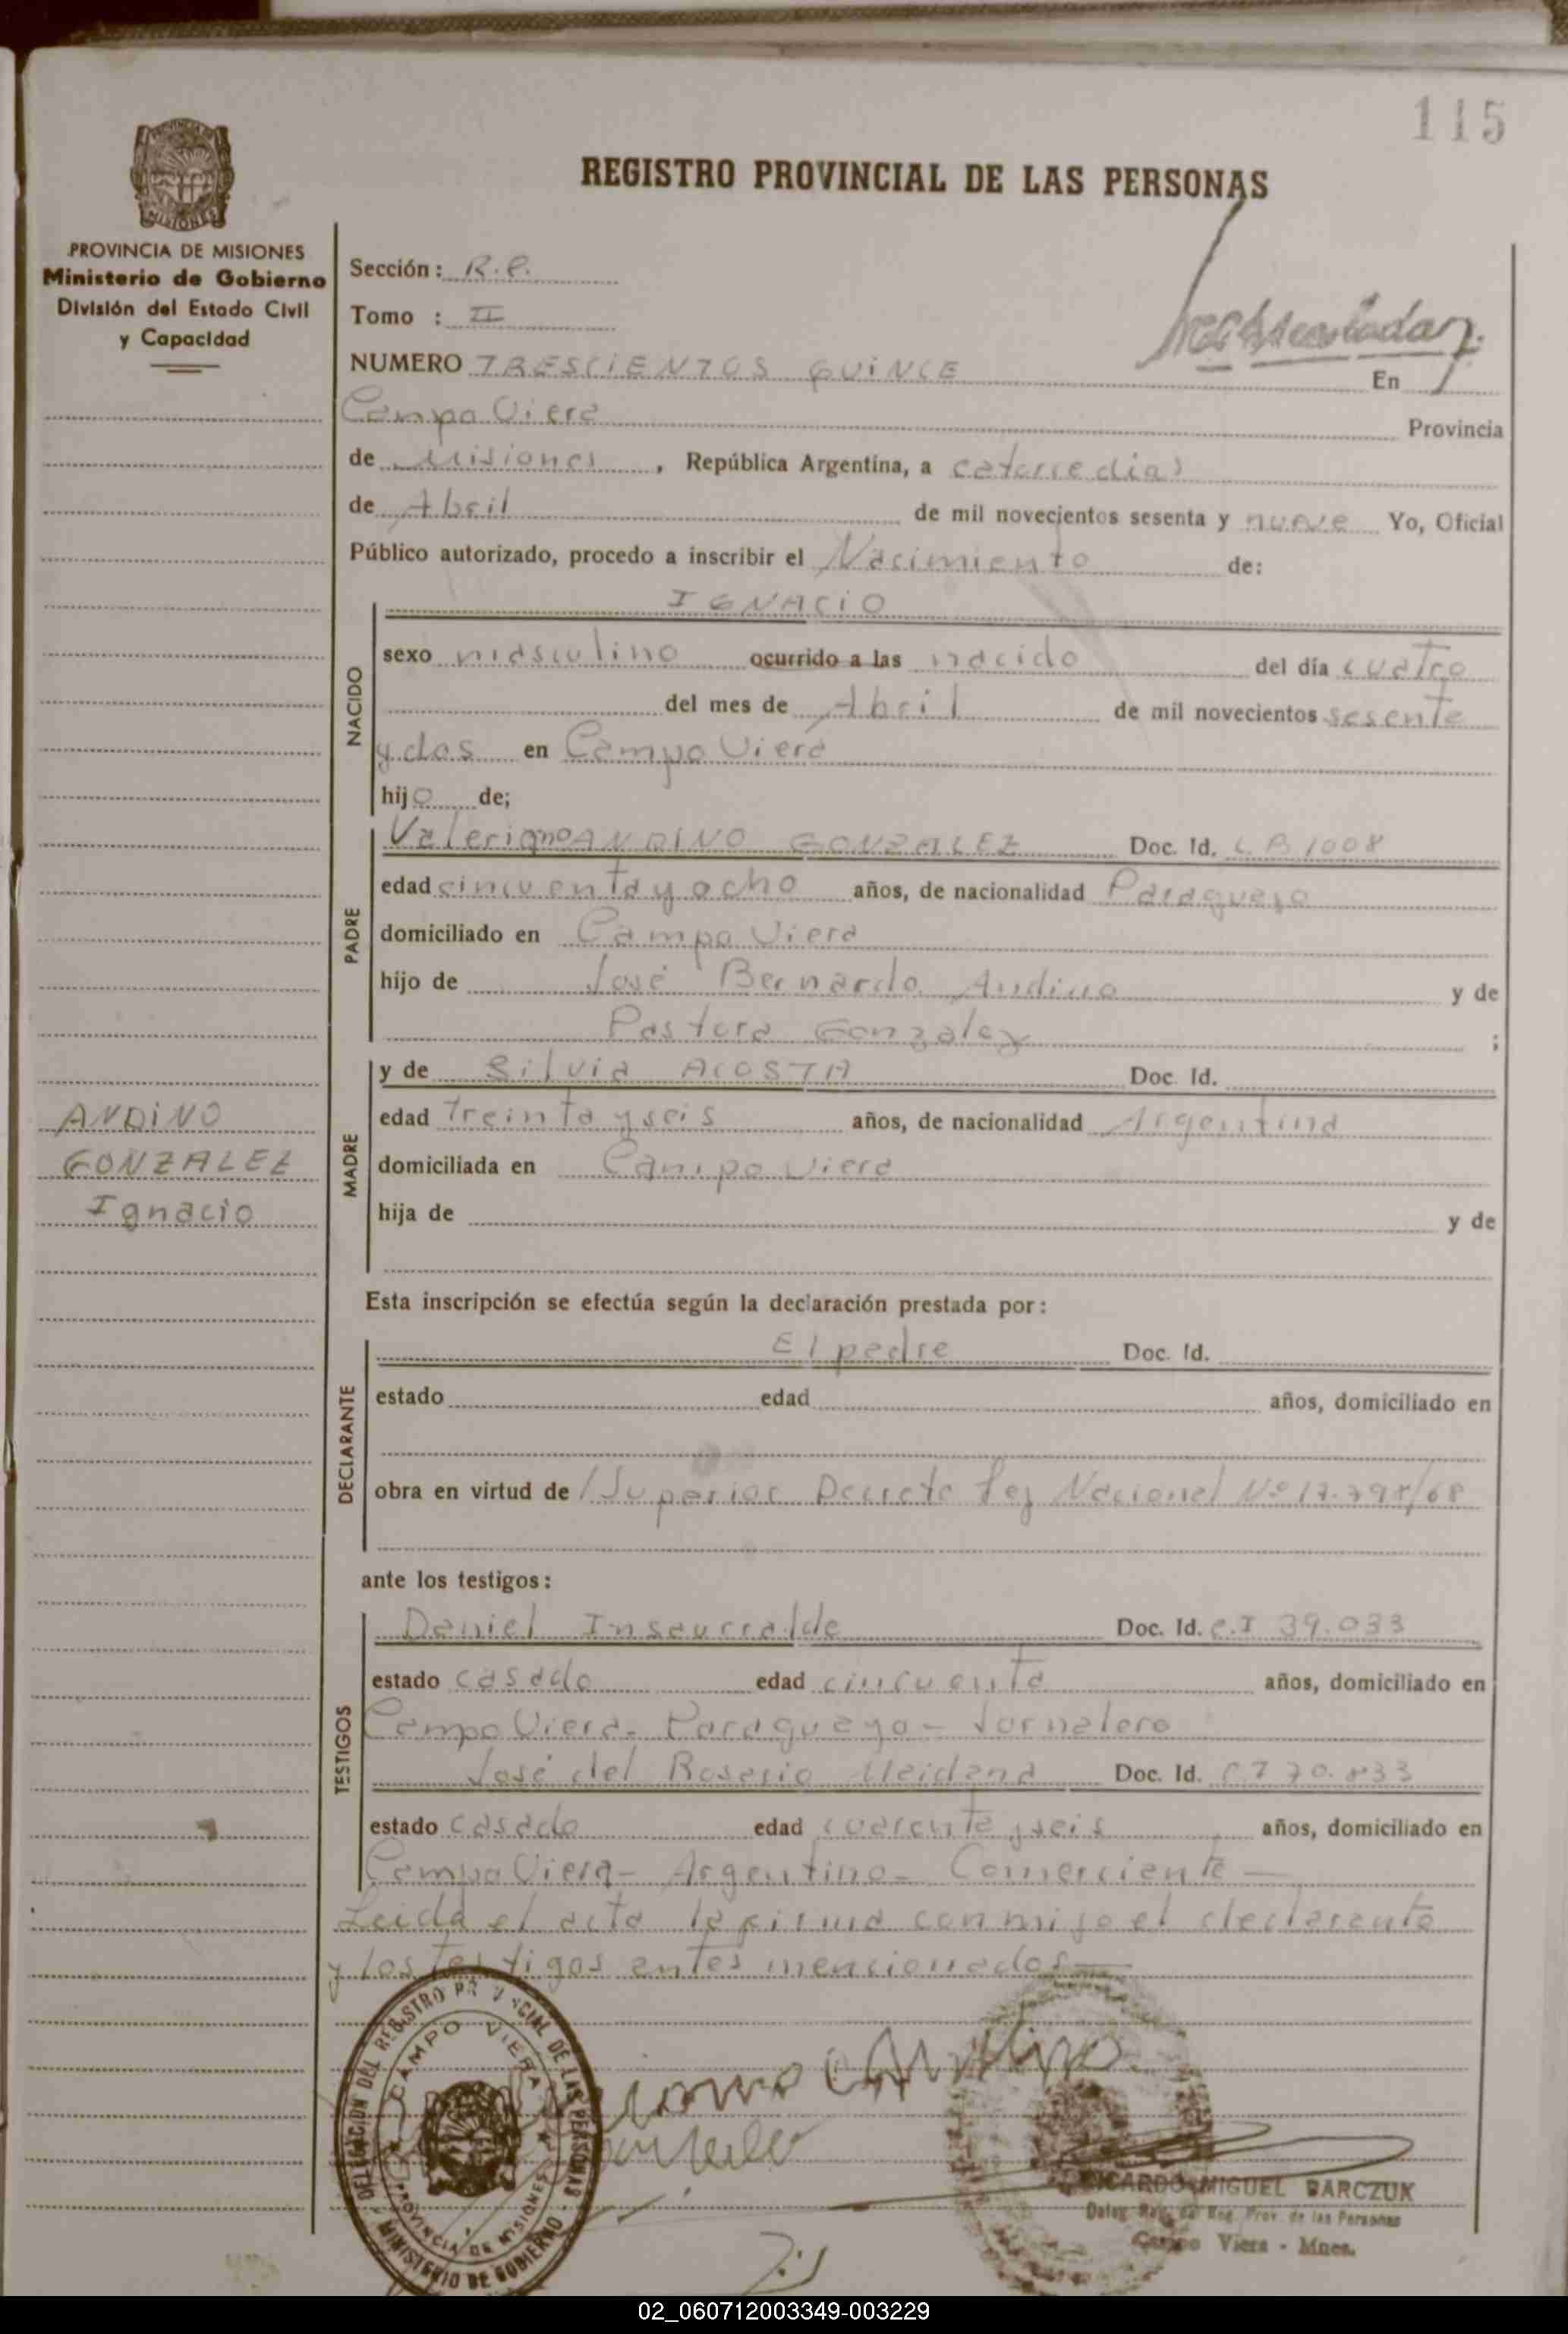 115
REGISTRO PROVINCIAL DE LAS PERSONAS
PROVINCIA DE MISIONES
Ministerio de Gobierno
División del Estado Civil
y Capacidad
Sección: R.P.
Tomo : II
NUMERO TRESCIENTOS QUINCE En
Campo Viera Provincia
de Misiones, República Argentina, a catorce dias
de Abril de mil novecientos sesenta y nueve Yo, Oficial
Público autorizado, procedo a inscribir el Nacimiento de:
NACIDO
IGNACIO
sexo masculino ocurrido a las nacido del día cuatro
del mes de Abril de mil novecientos sesenta
y dos en Campo Viera
hijo de;
PADRE
Valeriano ANDINO GONZALEZ Doc. Id. L B 1008
edad cincuenta y ocho años, de nacionalidad Paraguayo
domiciliado en Campo Viera
hijo de José Bernardo Andino y de
Pastora Gonzalez ;
MADRE
y de Silvia ACOSTA Doc. Id.
edad treinta y seis años, de nacionalidad Argentina
domiciliada en Campo Viera
hija de y de
ANDINO
GONZALEZ
Ignacio
Esta inscripción se efectúa según la declaración prestada por:
DECLARANTE
El padre Doc. Id.
estado edad años, domiciliado en
obra en virtud de Superior Decreto Ley Nacional Nº 17.798/68
ante los testigos:
TESTIGOS
Daniel Insaurralde Doc. Id. C.I 39.033
estado casado edad cincuenta años, domiciliado en
Campo Viera - Paraguayo - Jornalero
José del Rosario Maidana Doc. Id. 70.833
estado casado edad cuarenta y seis años, domiciliado en
Campo Viera - Argentino - Comerciante
Leida el acta la firma conmigo el declarante
y los testigos antes mencionados
DELEGACION DEL REGISTRO PROVINCIAL DE LAS PERSONAS
CAMPO VIERA
PROVINCIA DE MISIONES
MINISTERIO DE GOBIERNO
RICARDO MIGUEL BARCZUK
Reg. Prov. de las Personas
Campo Viera - Mnes.
02_060712003349-003229